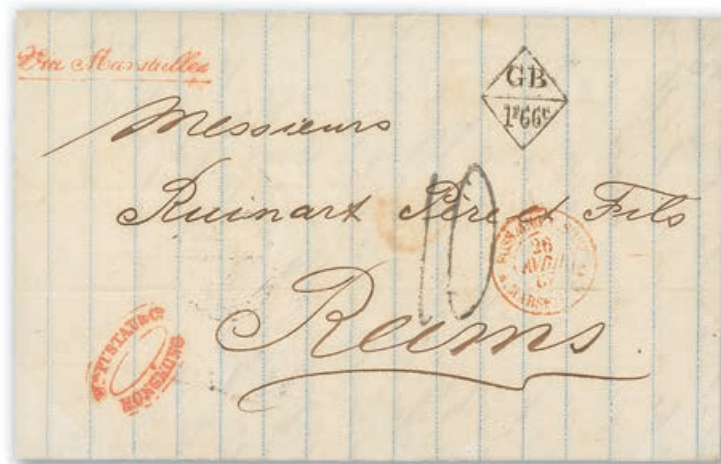 Via Marseilles
GB
1F66c
Messieurs
Ruinart Père et Fils
10
26
AVRIL
MARSEILLE
Reims
Wm PUSTAU & Co
HONGKONG